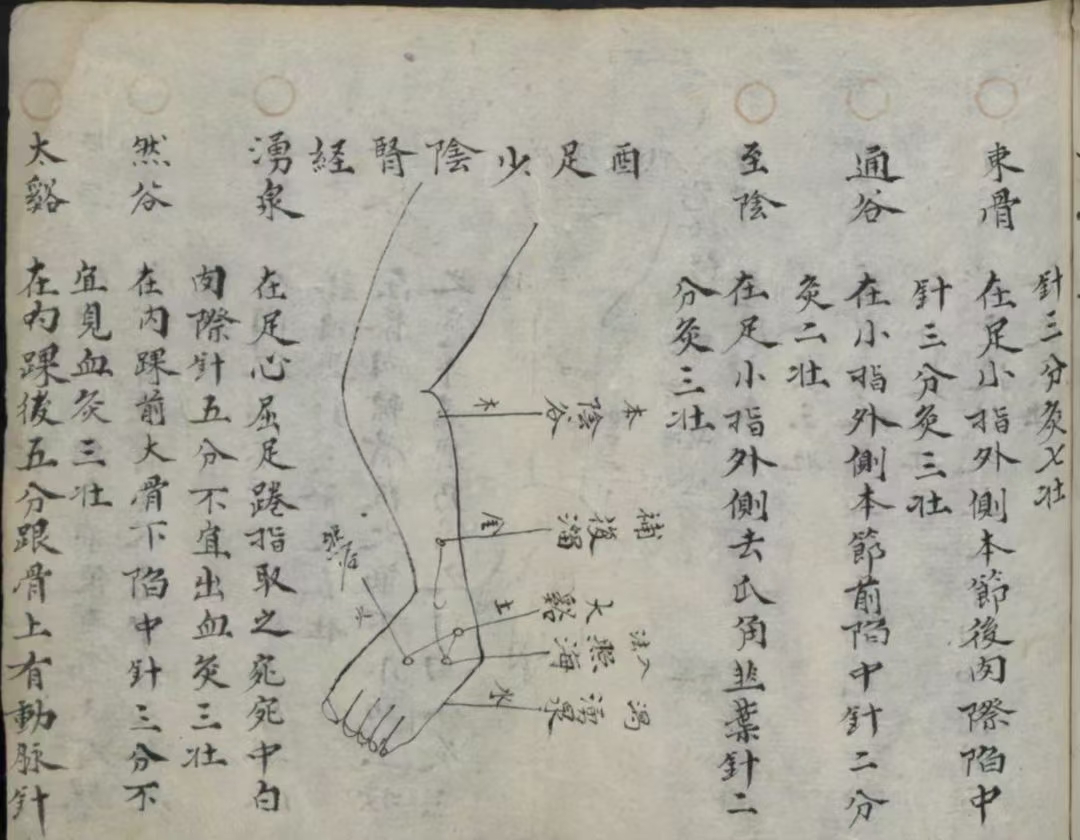 針三分灸七壯
束骨 在足小指外側本節後肉際陷中
針三分灸三壯
通谷 在小指外側本節前陷中針二分
灸二壯
至陰 在足小指外側去爪角韭葉針二
分灸三壯
酉足少陰腎経
本 陰谷 木
補 復溜 金
大谿 土
注入 照海
瀉 湧泉 水
然谷 火
湧泉 在足心屈足踡指取之宛宛中白
肉際針五分不宜出血灸三壯
然谷 在內踝前大骨下陷中針三分不
宜見血灸三壯
太谿 在內踝後五分跟骨上有動脉針